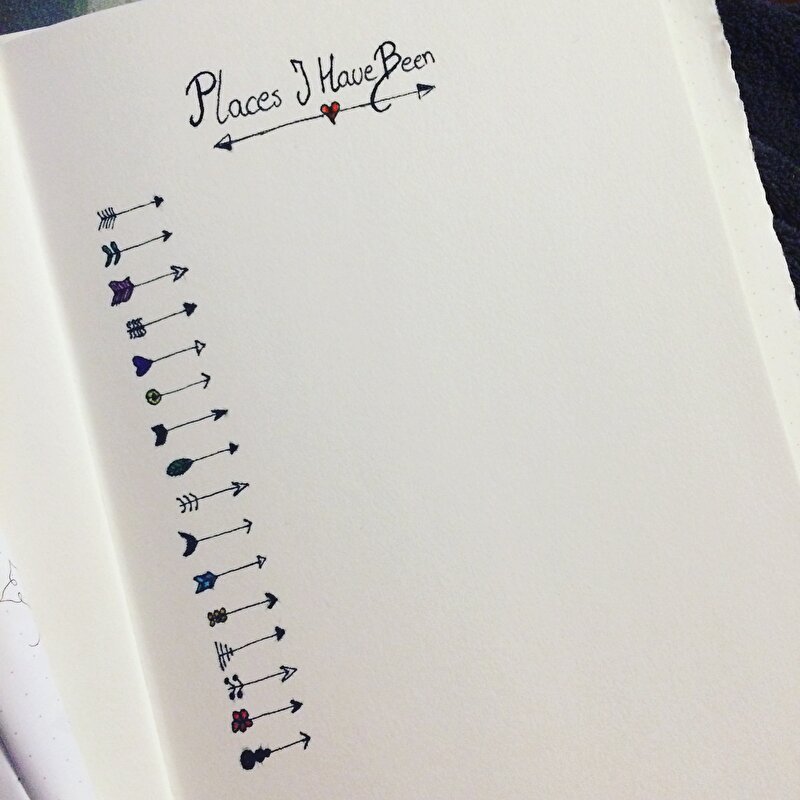 Places I Have Been